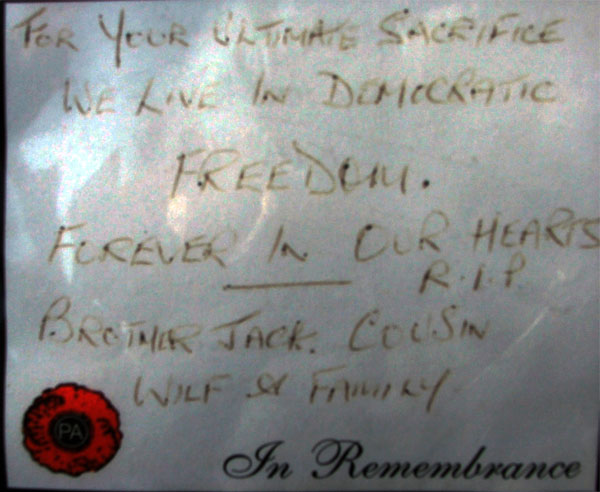 FOR YOUR ULTIMATE SACRIFICE
WE LIVE IN DEMOCRATIC
FREEDOM.
FOREVER IN OUR HEARTS
R.I.P.
BROTHER JACK. COUSIN
WILF & FAMILY
PA
In Remembrance